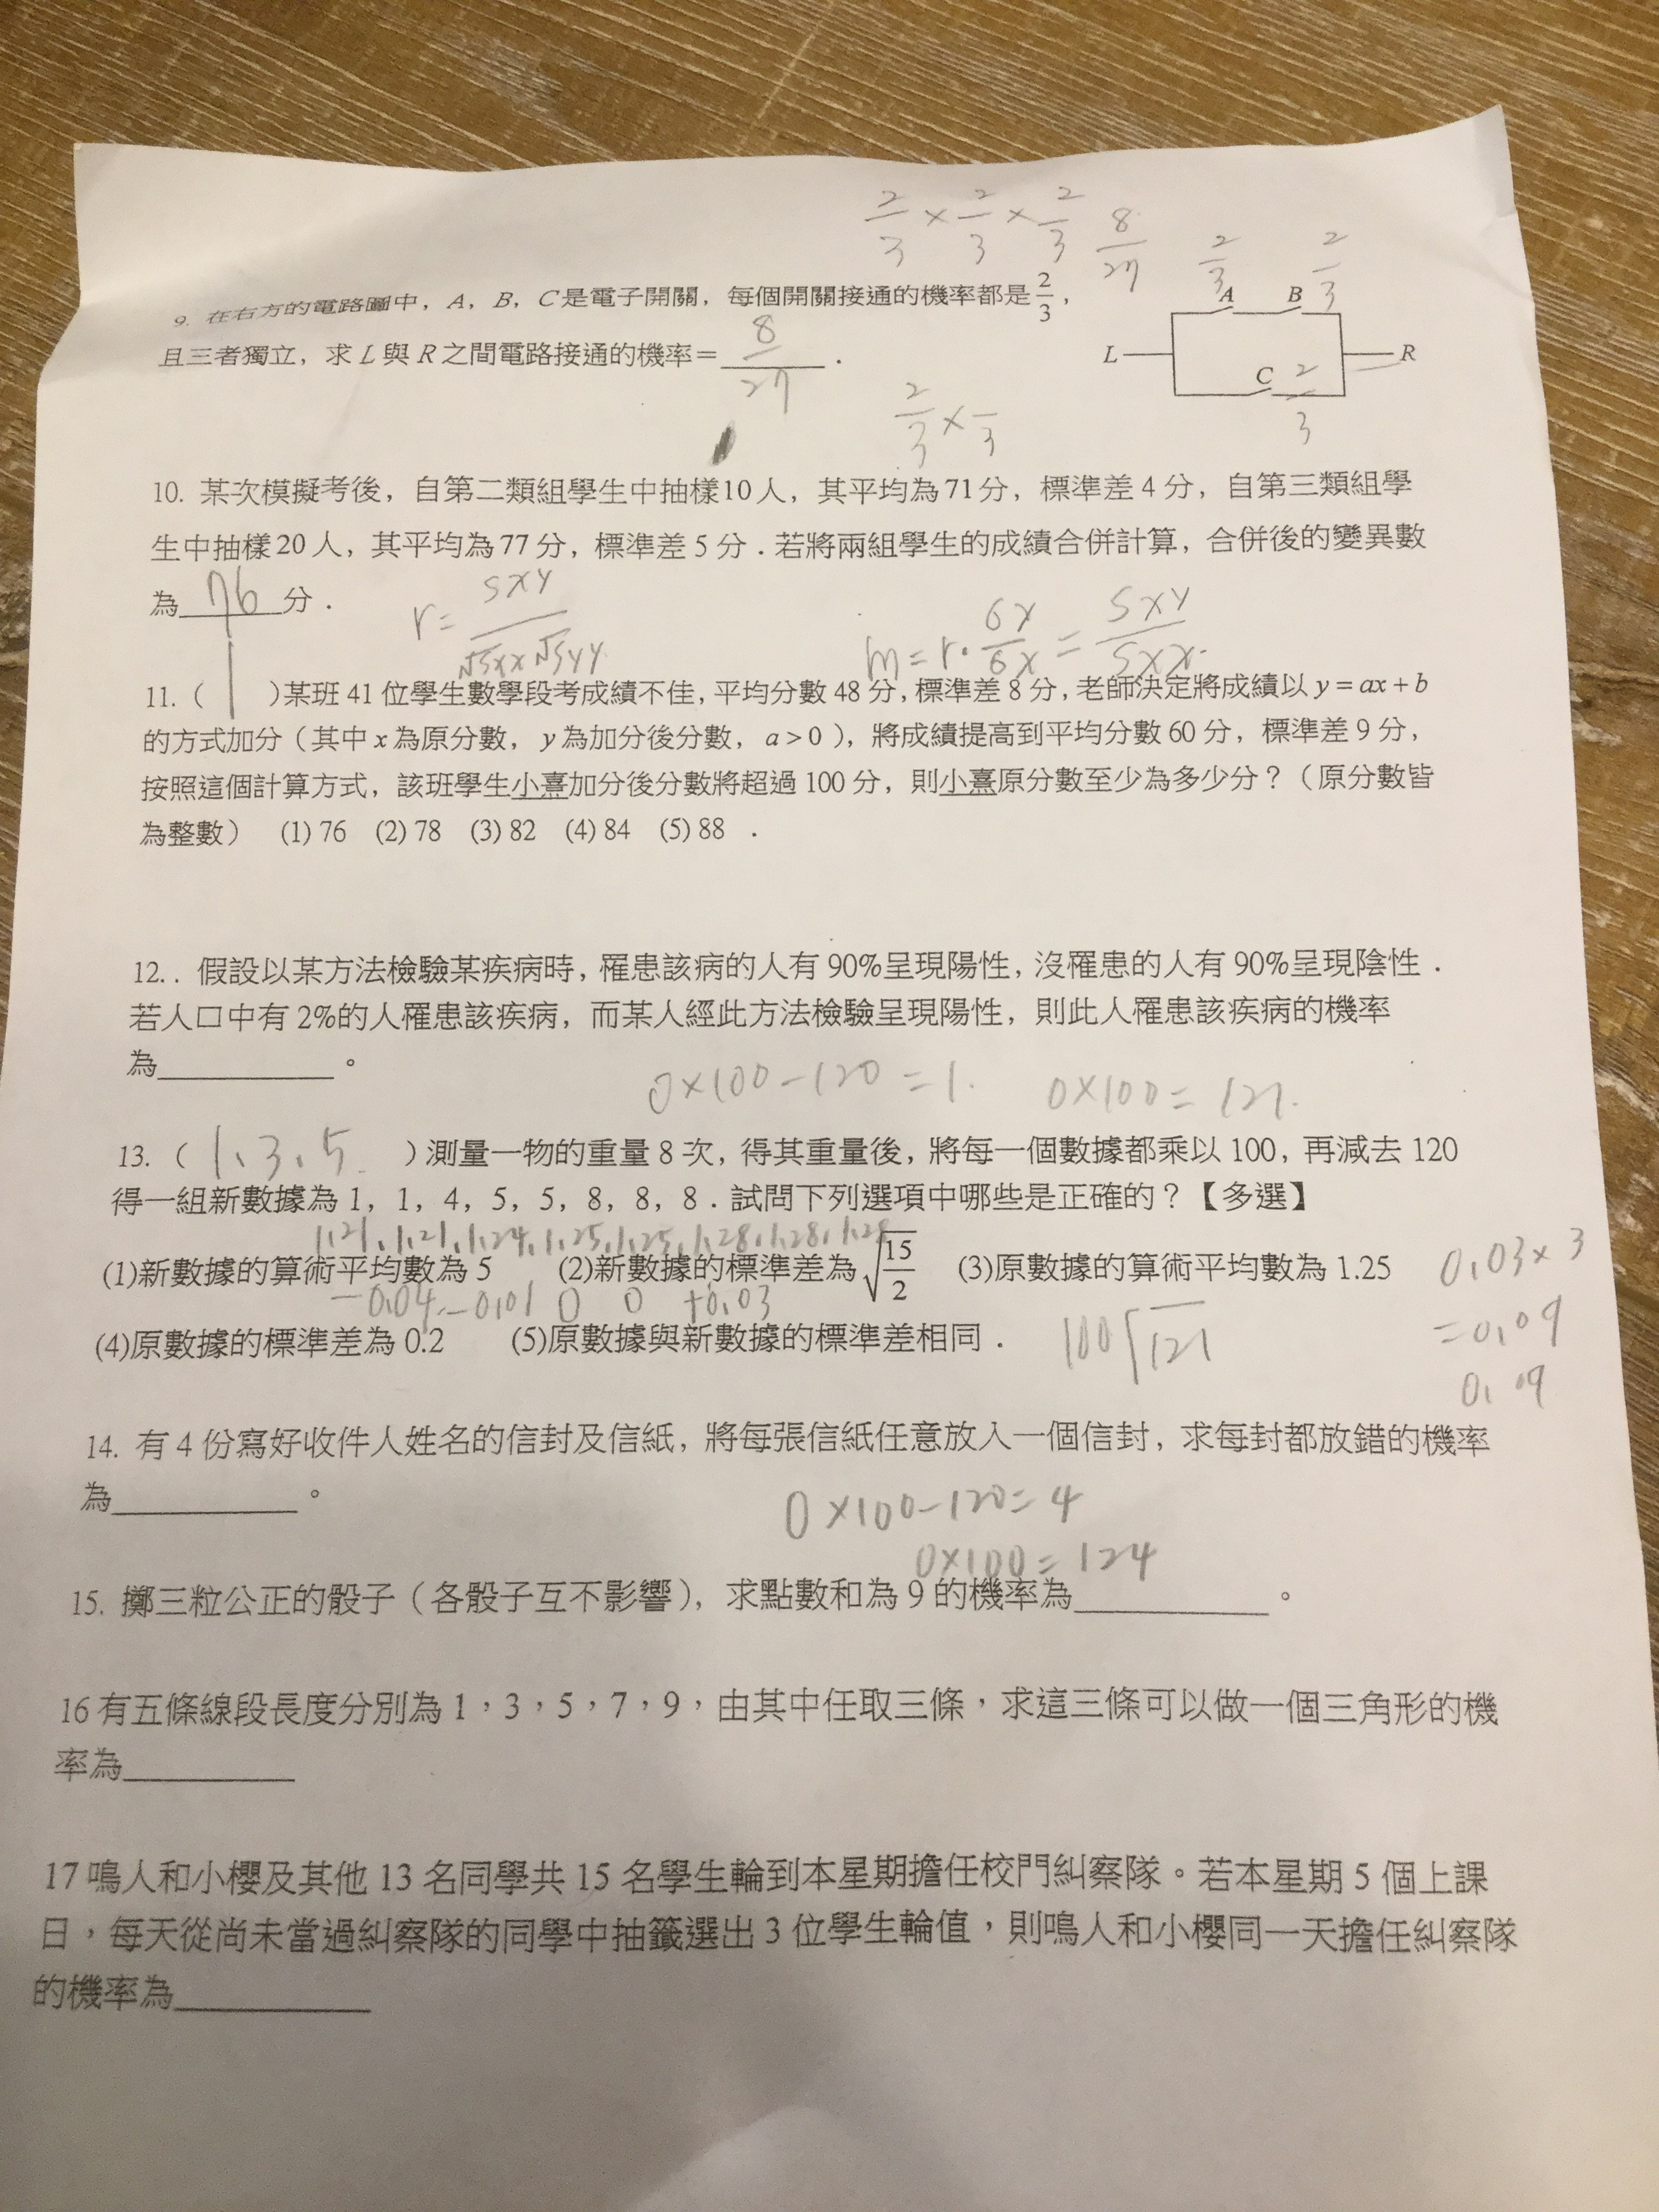 2/3 × 2/3 × 2/3 8/27
2/3 2/3
9. 在右方的電路圖中，A，B，C是電子開關，每個開關接通的機率都是 2/3，
A B
且三者獨立，求 L 與 R 之間電路接通的機率＝ 8/27 .
L R
C 2/3
2/3 × /3
10. 某次模擬考後，自第二類組學生中抽樣10人，其平均為71分，標準差 4 分，自第三類組學
生中抽樣 20 人，其平均為 77 分，標準差 5 分．若將兩組學生的成績合併計算，合併後的變異數
為 76 分．
r = Sxy/√Sxx √Syy
m = r· 6y/6x = Sxy/Sxx.
11. ( 1 )某班 41 位學生數學段考成績不佳，平均分數 48 分，標準差 8 分，老師決定將成績以 y = ax + b
的方式加分（其中 x 為原分數，y 為加分後分數，a > 0 ），將成績提高到平均分數 60 分，標準差 9 分，
按照這個計算方式，該班學生小熹加分後分數將超過 100 分，則小熹原分數至少為多少分？（原分數皆
為整數） (1) 76 (2) 78 (3) 82 (4) 84 (5) 88 ．
12. . 假設以某方法檢驗某疾病時，罹患該病的人有 90%呈現陽性，沒罹患的人有 90%呈現陰性．
若人口中有 2%的人罹患該疾病，而某人經此方法檢驗呈現陽性，則此人罹患該疾病的機率
為__________。
0×100-120=1. 0×100=121.
13. ( 1、3、5 )測量一物的重量 8 次，得其重量後，將每一個數據都乘以 100，再減去 120
得一組新數據為 1，1，4，5，5，8，8，8．試問下列選項中哪些是正確的？【多選】
1.21、1.21、1.24、1.25、1.25、1.28、1.28、1.28
(1)新數據的算術平均數為 5 (2)新數據的標準差為 √15/2 (3)原數據的算術平均數為 1.25
-0.04、-0.01 0 0 +0.03
0.03×3
=0.09
0.09
(4)原數據的標準差為 0.2 (5)原數據與新數據的標準差相同．
100 121
14. 有 4 份寫好收件人姓名的信封及信紙，將每張信紙任意放入一個信封，求每封都放錯的機率
為__________。
0×100-120=4
0×100=124
15. 擲三粒公正的骰子（各骰子互不影響），求點數和為 9 的機率為__________。
16 有五條線段長度分別為 1，3，5，7，9，由其中任取三條，求這三條可以做一個三角形的機
率為__________
17 鳴人和小櫻及其他 13 名同學共 15 名學生輪到本星期擔任校門糾察隊。若本星期 5 個上課
日，每天從尚未當過糾察隊的同學中抽籤選出 3 位學生輪值，則鳴人和小櫻同一天擔任糾察隊
的機率為__________